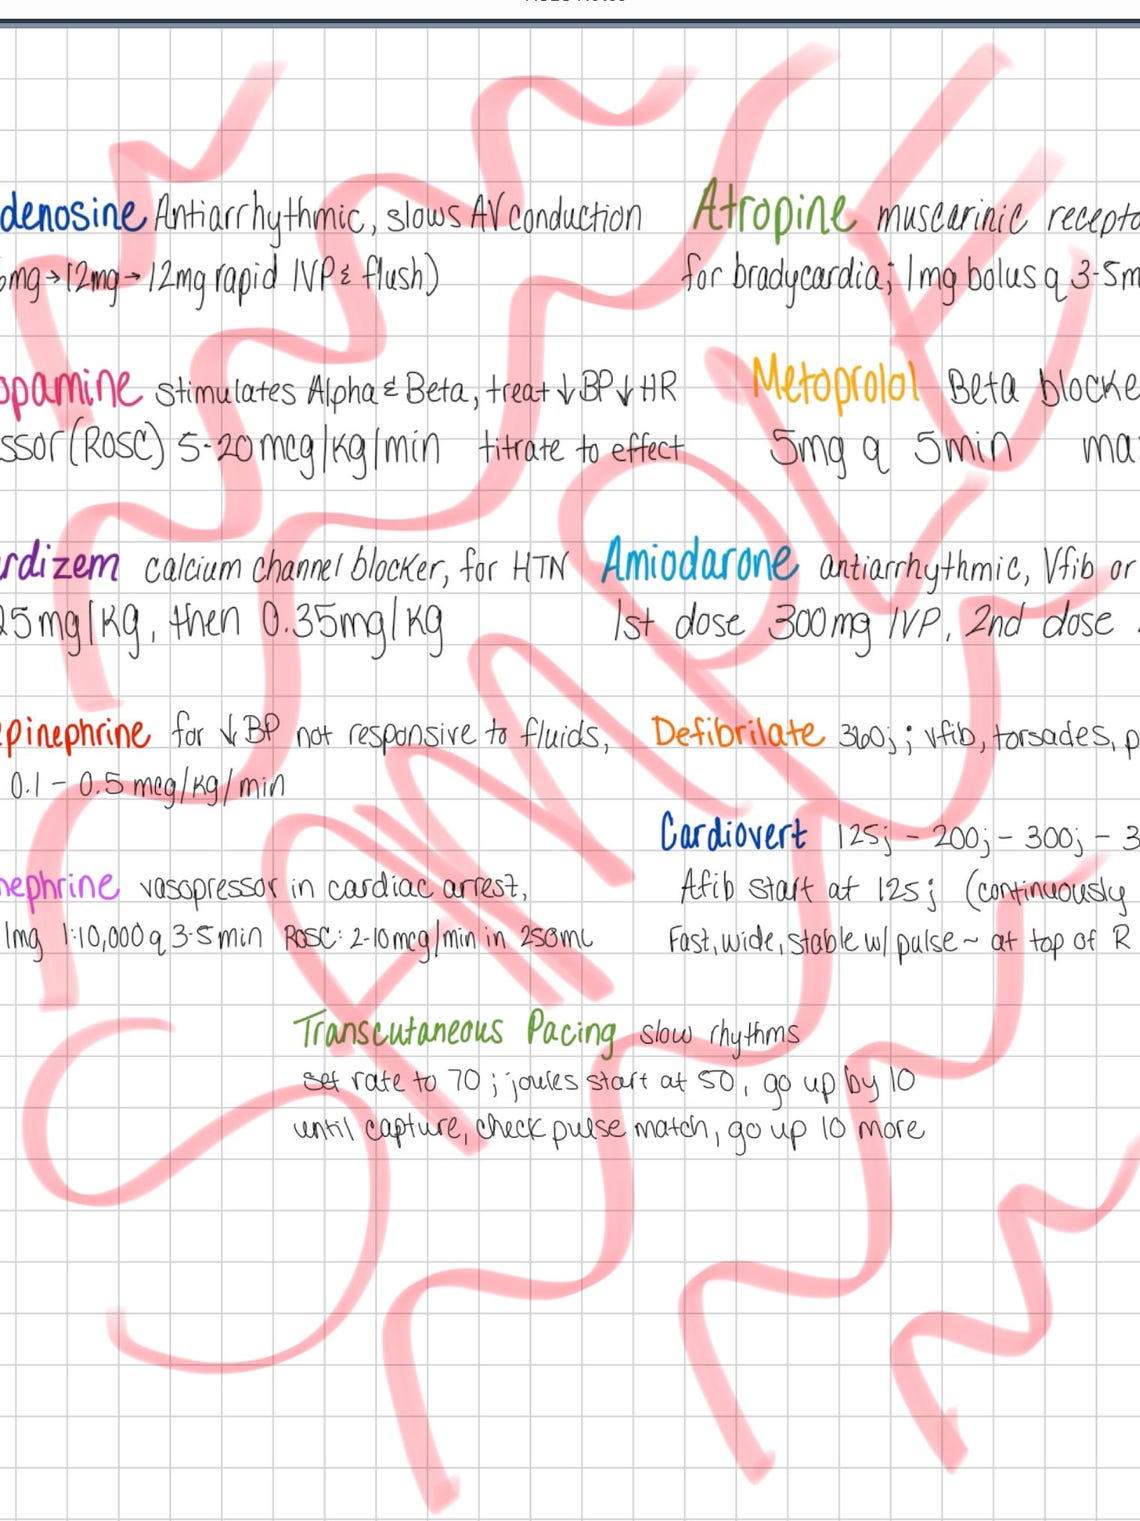 denosine Antiarrhythmic, slows AV conduction
6mg→12mg→12mg rapid IVP & flush)
Atropine muscarinic recepto
for bradycardia; 1mg bolus q 3-5m
opamine stimulates Alpha & Beta, treat ↓BP↓HR
ssor (ROSC) 5-20mcg/kg/min titrate to effect
Metoprolol Beta blocke
5mg q 5min ma
rdizem calcium channel blocker, for HTN
25mg/kg, then 0.35mg/kg
Amiodarone antiarrhythmic, Vfib or
1st dose 300mg IVP, 2nd dose
epinephrine for ↓BP not responsive to fluids,
0.1 - 0.5 mcg/kg/min
Defibrilate 360j; vfib, torsades, p
Cardiovert 125j - 200j - 300j - 3
Afib start at 125j (continuously
Fast, wide, stable w/ pulse ~ at top of R
nephrine vasopressor in cardiac arrest,
1mg 1:10,000 q 3-5min ROSC: 2-10mcg/min in 250mL
Transcutaneous Pacing slow rhythms
set rate to 70; joules start at 50, go up by 10
until capture, check pulse match, go up 10 more
SAMPLE